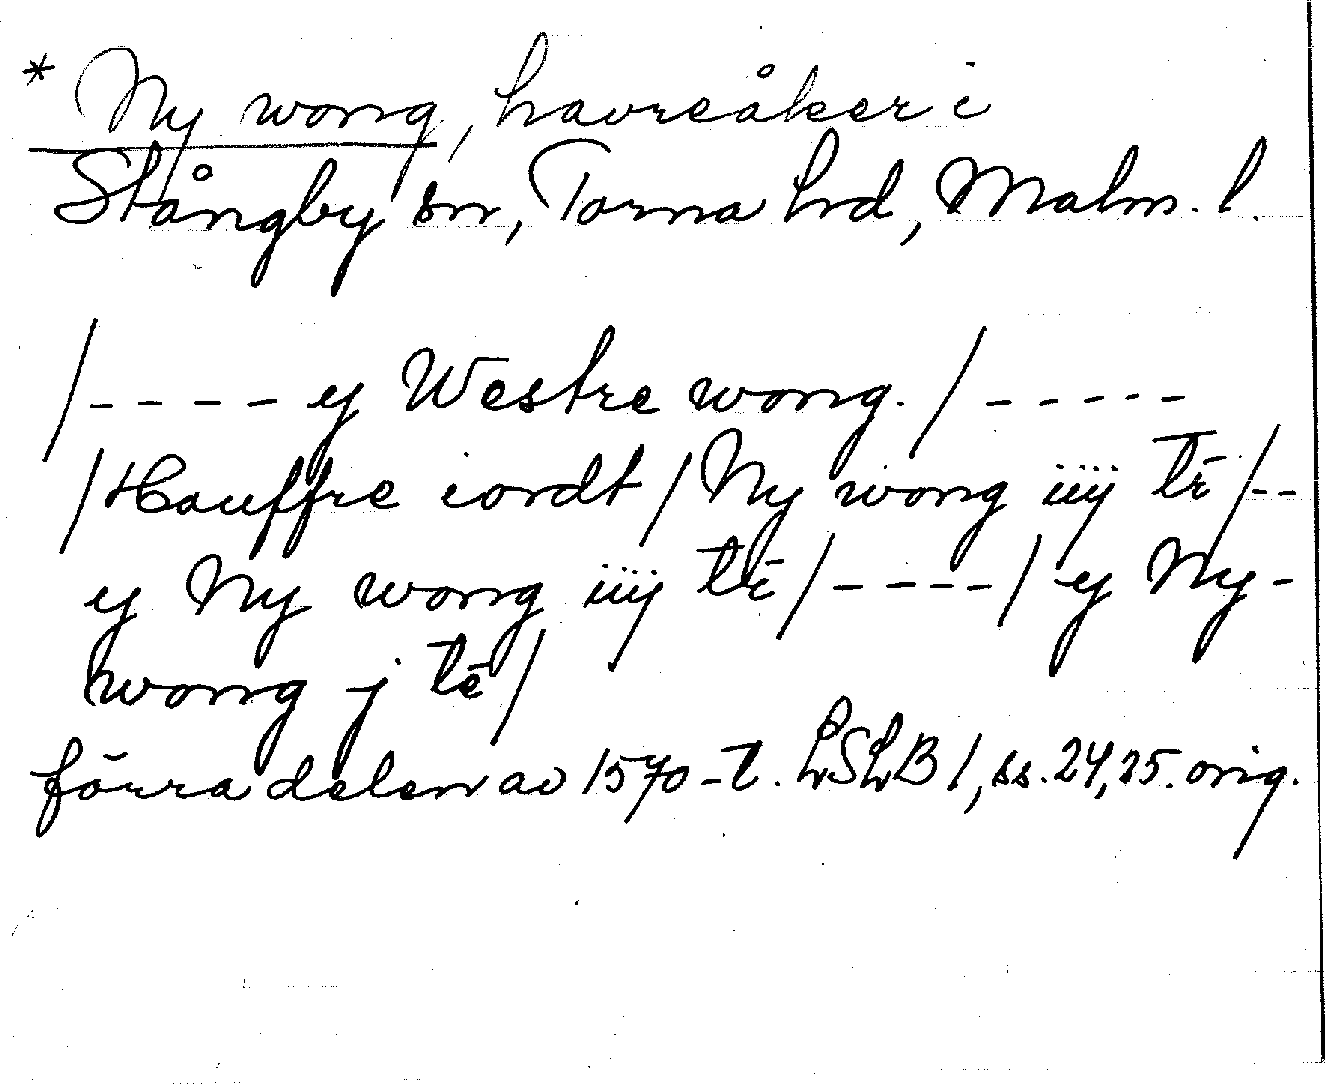 * Ny wong, havreåker i
Stångby sn, Torna hd, Malm. l.
/---- y Westre wong. / -----
/Hauffre iordt / Ny wong iiij tē /--
y Ny wong iiij tē /----/ y Ny-
wong j tē /
förra delen av 1570-t. LSLB 1, ss. 24, 25. orig.